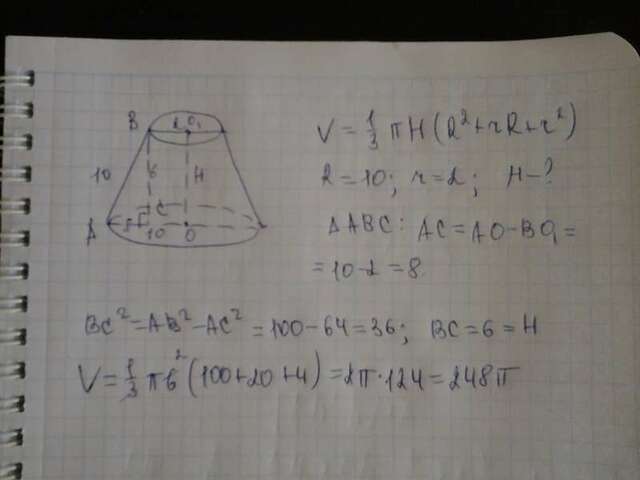 B 2 O₁
10 6 H
A 8 C 10 O
V = 1/3 πH(R²+rR+r²)
R=10; r=2; H-?
ΔABC: AC=AO-BO₁=
=10-2=8
BC²=AB²-AC²=100-64=36; BC=6=H
V=1/3 π6²(100+20+4)=2π·124=248π